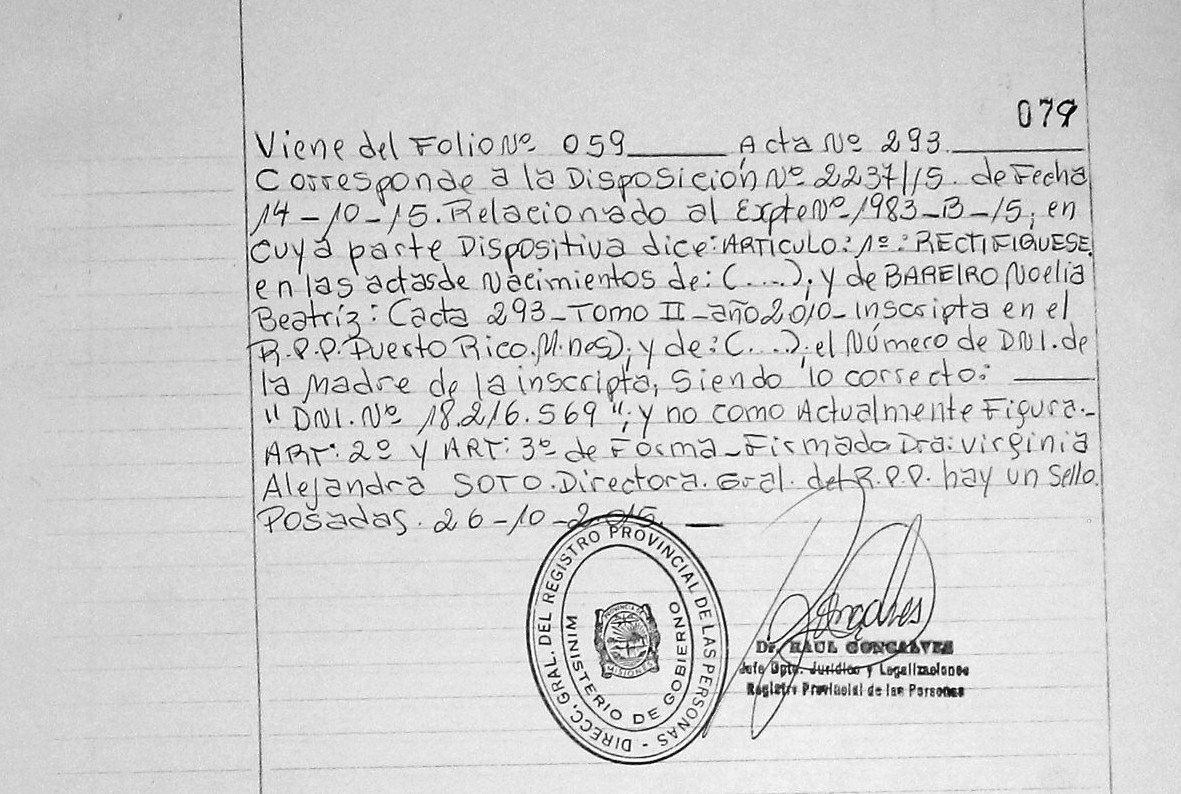 079
Viene del Folio Nº 059 Acta Nº 293.
Corresponde a la Disposición Nº 2237/15. de Fecha
14-10-15. Relacionado al Expte Nº 1983-B-15; en
cuya parte Dispositiva dice: ARTICULO: 1º: RECTIFIQUESE,
en las actas de Nacimientos de: (....); y de BAREIRO Noelia
Beatriz: (acta 293-Tomo II-año 2010-Inscripta en el
R.P.P. Puerto Rico. Mnes); y de: (....). el Número de DNI. de
la Madre de la inscripta, Siendo lo correcto:
"DNI. Nº 18.216.569"; y no como Actualmente Figura.-
ART: 2º y ART: 3º de Forma-Firmado Dra: Virginia
Alejandra SOTO. Directora. Gral. del R.P.P. hay un Sello.
POSadas. 26-10-2.015.
DIRECC. GRAL. DEL REGISTRO PROVINCIAL DE LAS PERSONAS -
MINISTERIO DE GOBIERNO
PROVINCIA DE
MISIONES
Dr. RAUL GONCALVES
Jefe Dpto. Jurídico y Legalizaciones
Registro Provincial de las Personas